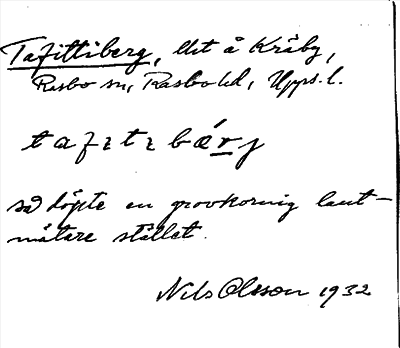 Tafittiberg, litet å Kråby,
Rasbo sn, Rasbo hd, Upps. l.
tafɩtɩbárj
så döpte en grovkornig lant-
mätare stället.
Nils Olsson 1932